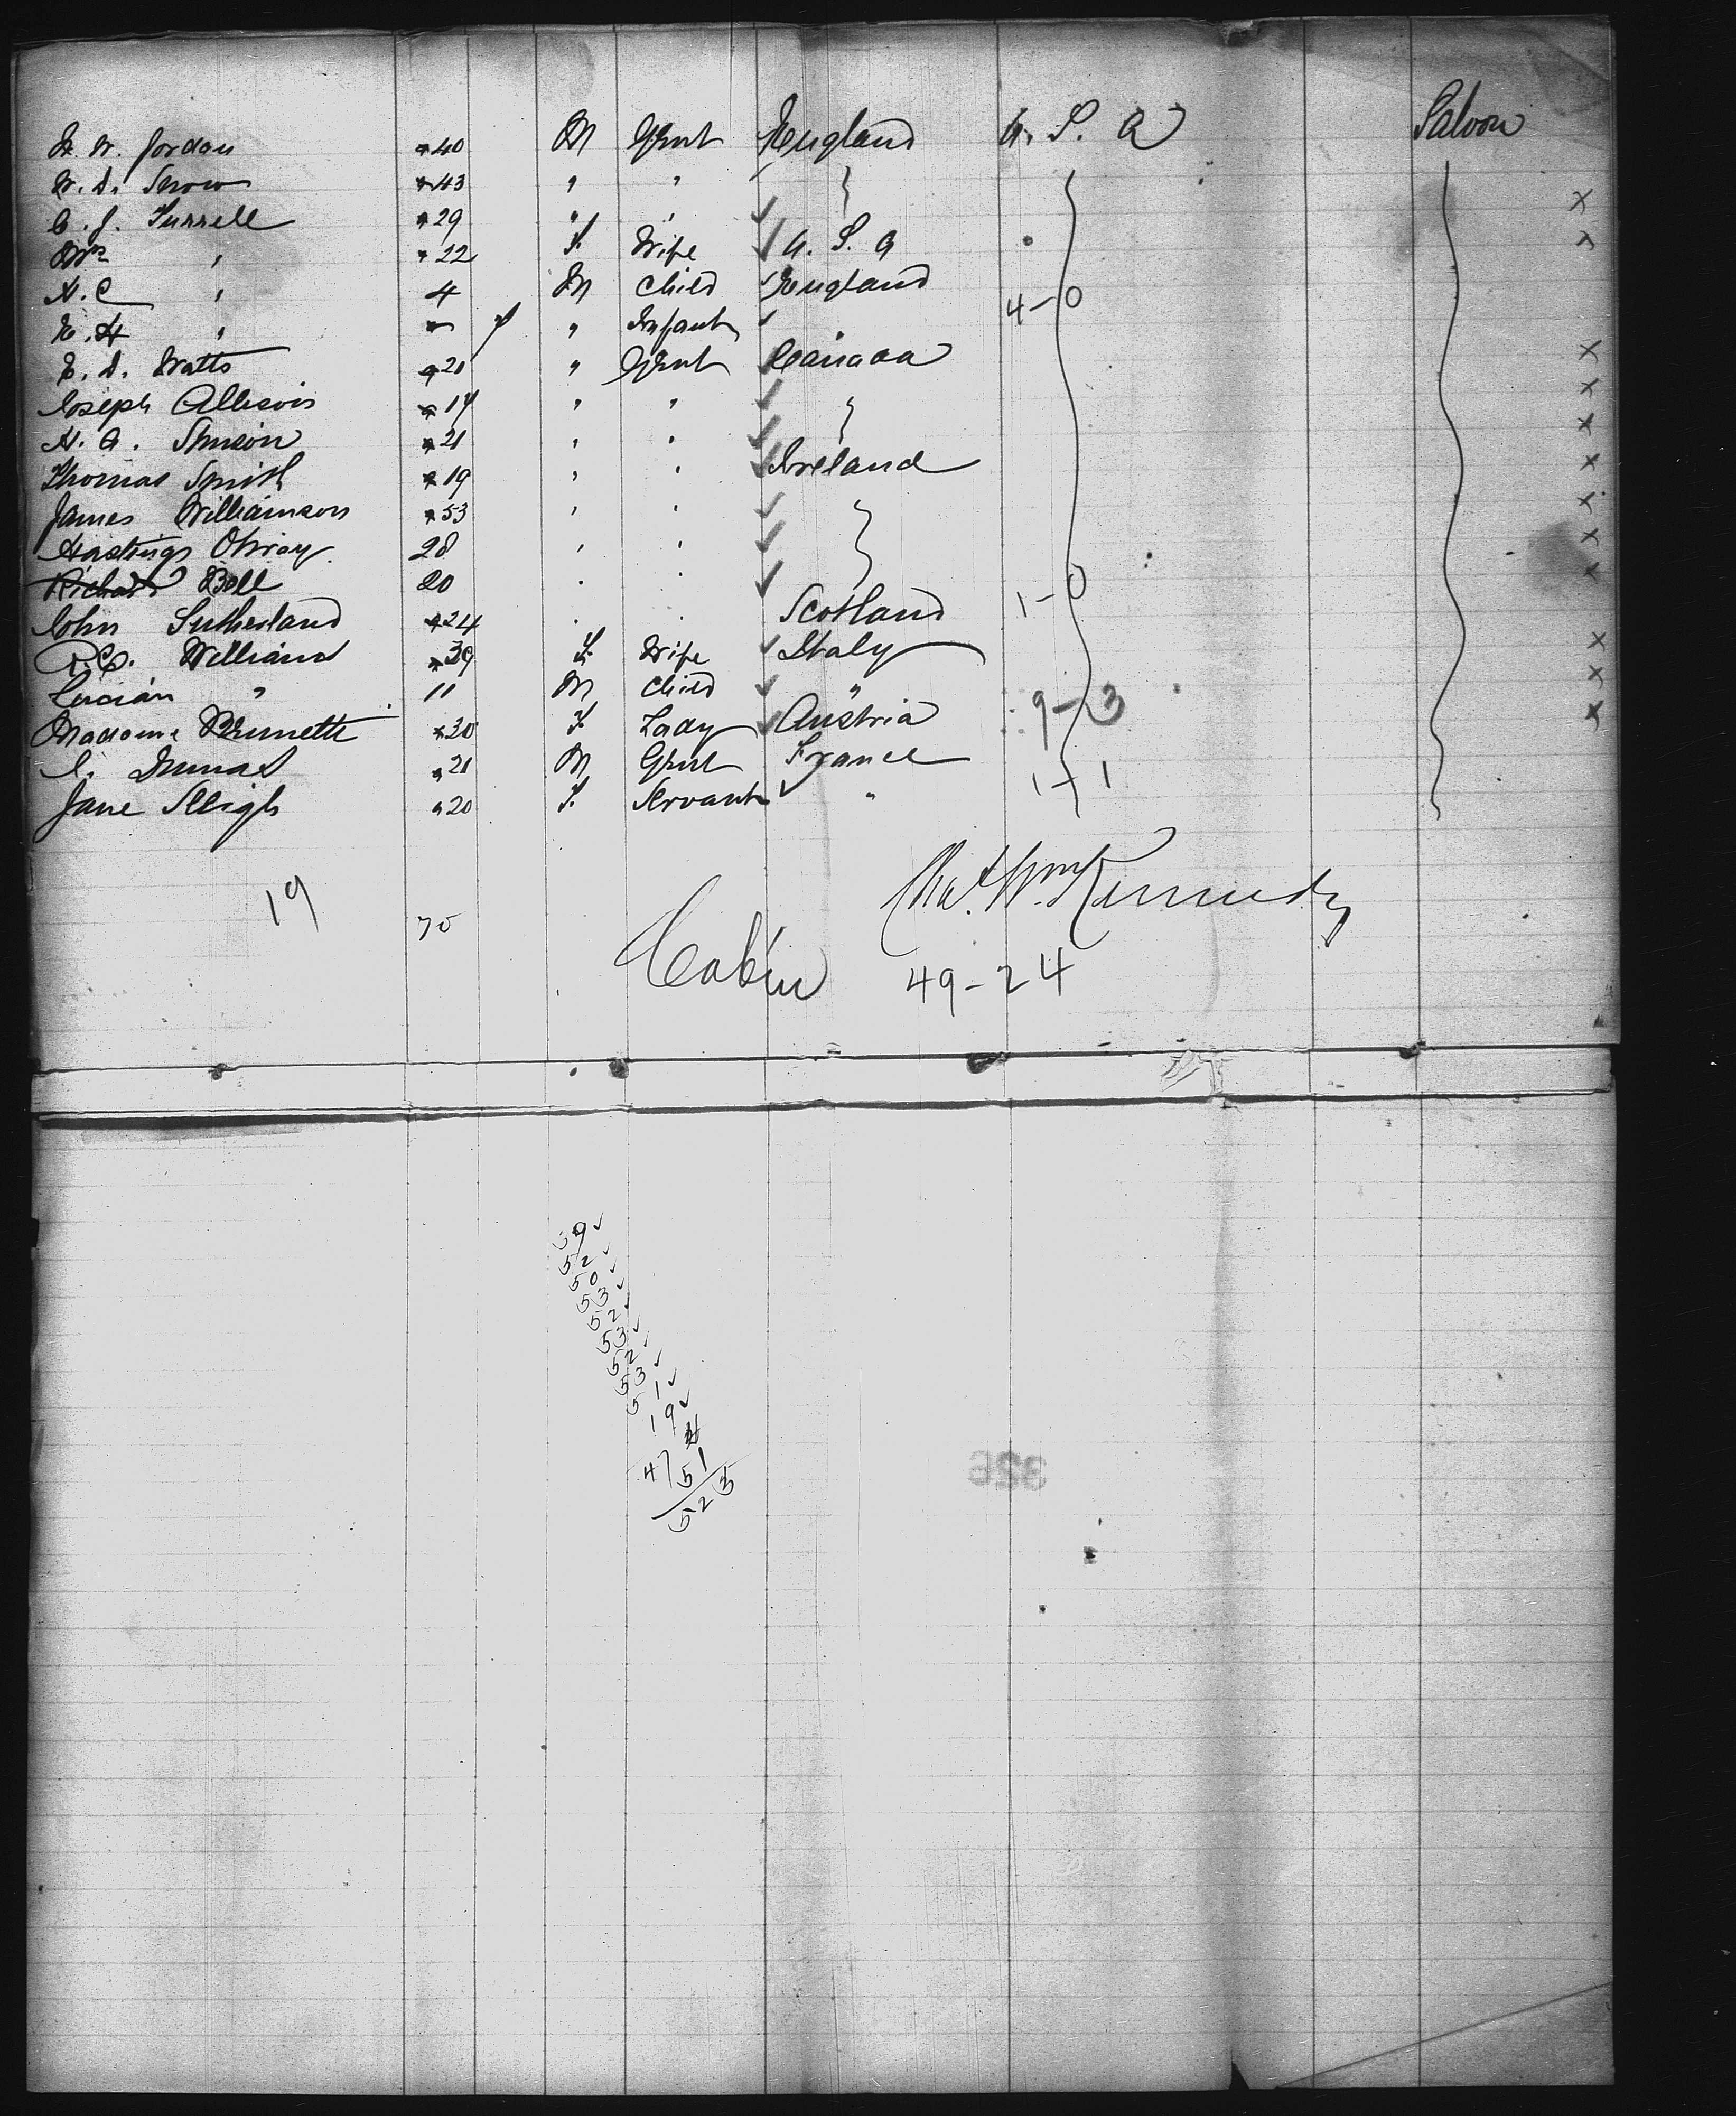 W. W. Jordan 40 M Gent England U. S. A Saloon
W. D. Snow 43 " "
C. J. Turrell 29 " "
Mrs " 22 F. Wife U. S. A
A. C " 4 M Child England 4-0
E. H " " Infant "
E. D. Watts 21 " Gent Canada
Joseph Allison 14 " "
A. G. Simson 21 " "
Thomas Smith 19 " " Ireland
James Williamson 53 " "
Hastings Otway 28 " "
Richard Bell 20 " " 1-0
John Sutherland 24 " " Scotland
Williams 39 F. Wife Italy
Lucian " 11 M Child " 9-3
Madame Brunette 30 F. Lady Austria
Dumas 21 M Gent France 1-1
Jane Sleigh 20 F. Servant "
19
70
Wm Kennedy
Cabin 49-24
39
52
50
53
52
53
52
53
51
19
474
51
523
326